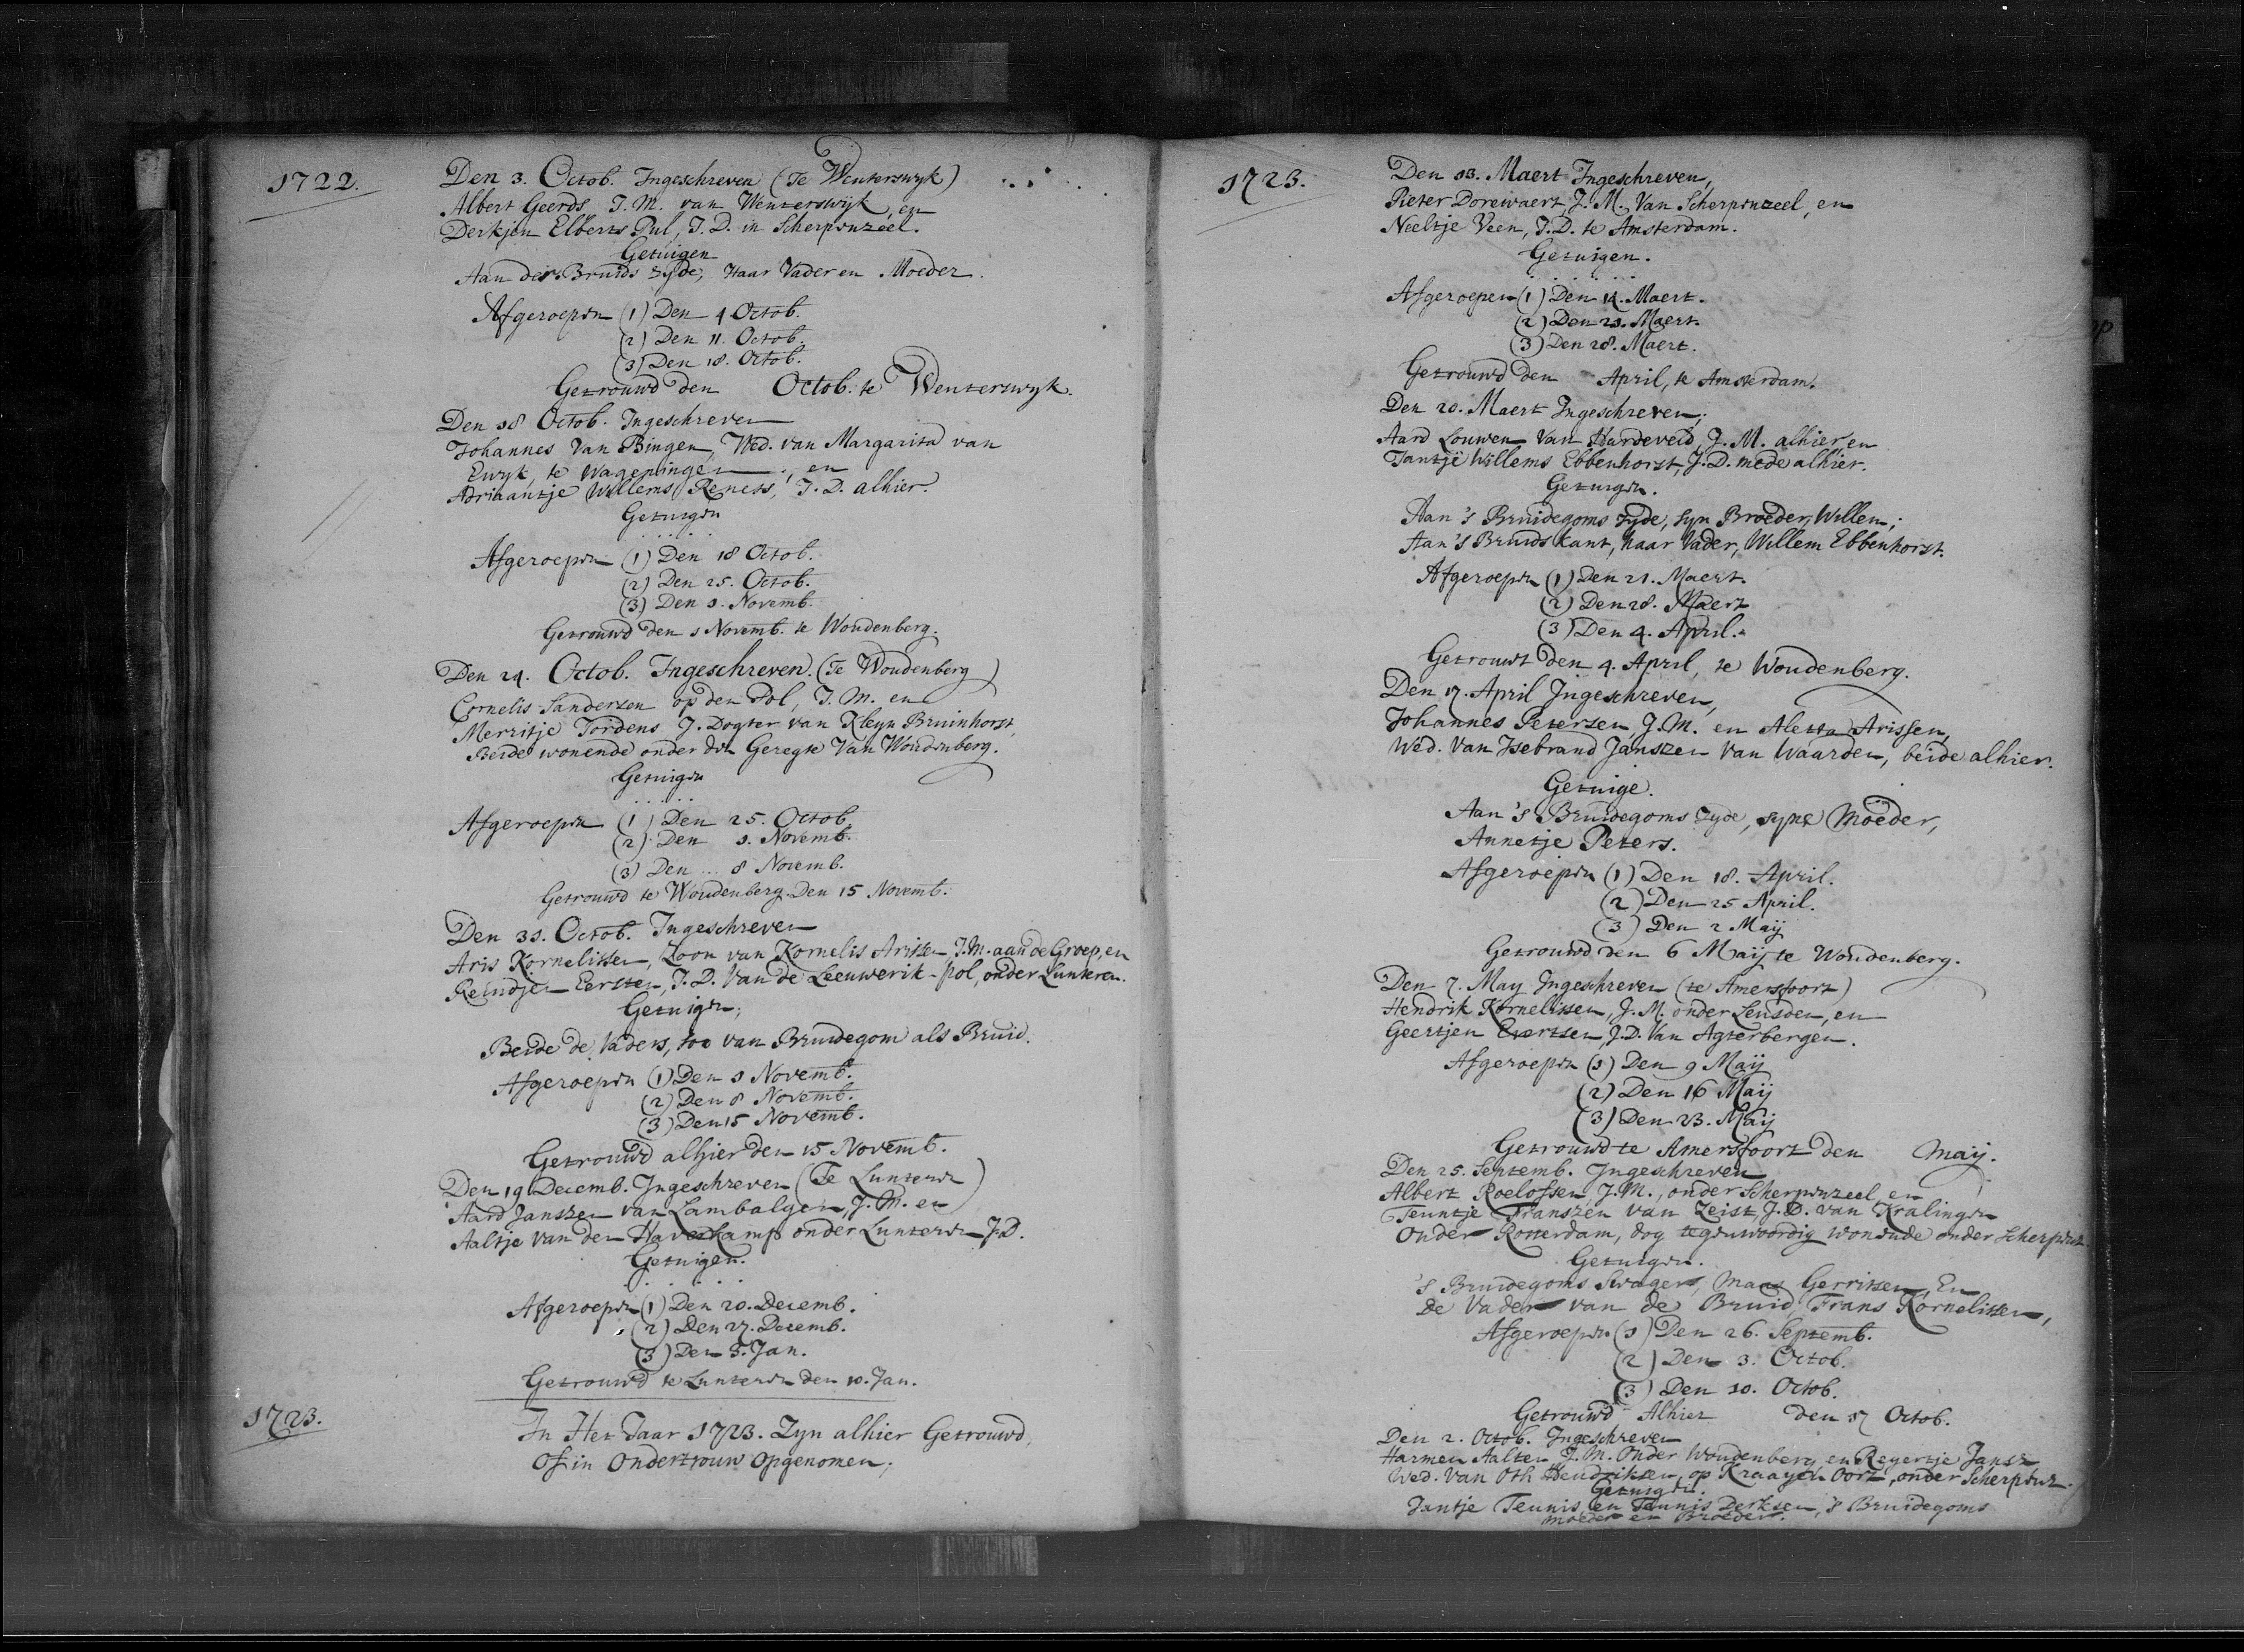 1722.
Den 3. Octob. Ingeschreven (Te Wenterswyk)
Albert Geerds, J. M. van Wenterswyk, en
Derkjen Elberts Pul, J. D. in Scherpenzeel.
Getuigen
Aan des Bruids zyde, Haar Vader en Moeder.
Afgeroepen (1) Den 4 Octob.
(2) Den 11. Octob.
(3) Den 18. Octob.
Getrouwd den Octob. te Wenterswyk.
Den 18 Octob. Ingeschreven
Johannes Van Bingen, Wed. van Margarita van
Ewyk, te Wageningen, en
Adriaantje Willems Reness, J. D. alhier.
Getuigen
.....
Afgeroepen (1) Den 18 Octob.
(2) Den 25. Octob.
(3) Den 1. Novemb.
Getrouwd den 1 Novemb. te Woudenberg.
Den 24. Octob. Ingeschreven. (Te Woudenberg)
Cornelis Sandersen op den Pol, J. M. en
Merritje Jordens J. Dogter van Kleyn Bruinhorst,
Beide wonende onder den Geregte Van Woudenberg.
Getuigen
.....
Afgeroepen (1) Den 25. Octob.
(2) Den 1. Novemb.
(3) Den ... 8 Novemb.
Getrouwd te Woudenberg Den 15 Novemb.
Den 31. Octob. Ingeschreven
Aris Kornelissen, Zoon van Kornelis Arissen J. M. aan de Groep, en
Reindjen Eersten, J. D. Van de Leeuwerik-pol, onder Lunteren.
Getuigen;
Beide de Vaders, soo van Bruidegom als Bruid.
Afgeroepen (1) Den 1 Novemb.
(2) Den 8 Novemb.
(3) Den 15 Novemb.
Getrouwd alhier den 15 Novemb.
Den 19 Decemb. Ingeschreven (Te Lunteren)
Aard Janszen van Lambalgen, J. M. en
Aaltje van den Haverkamp onder Lunteren J. D.
Getuigen.
......
Afgeroepen (1) Den 20. Decemb.
(2) Den 27. Decemb.
(3) Den 3. Jan.
Getrouwd te Lunteren den 10. Jan.
1723.
In Het Jaar 1723. Zyn alhier Getrouwd,
Of in Ondertrouw Opgenomen;
1723.
Den 13. Maert Ingeschreven,
Pieter Dorewaert, J. M. Van Scherpenzeel, en
Neeltje Veen, J. D. te Amsterdam.
Getuigen.
......
Afgeroepen (1) Den 14. Maert.
(2) Den 21. Maert.
(3) Den 28. Maert.
Getrouwd den April, te Amsterdam.
Den 20. Maert Ingeschreven;
Aard Louwen Van Hardeveld, J. M. alhier en
Jantje Willems Ebbenhorst, J. D. mede alhier.
Getuigen.
Aan 's Bruidegoms zyde, syn Broeder, Willem;
Aan 's Bruids kant, haar Vader, Willem Ebbenhorst.
Afgeroepen (1) Den 21. Maert.
(2) Den 28. Maert
(3) Den 4. April.
Getrouwt den 4. April, te Woudenberg.
Den 17. April Ingeschreven,
Johannes Petersen, J. M. en Aletta Arissen,
Wed. van Isebrand Janszen Van Waarden, beide alhier.
Getuige.
Aan 's Bruidegoms Zyde, syne Moeder,
Annetje Peters.
Afgeroepen (1) Den 18. April.
(2) Den 25 April.
(3) Den 2 Maij
Getrouwd den 6 Maij te Woudenberg.
Den 7. May Ingeschreven (te Amersfoort)
Hendrik Kornelissen, J. M. onder Leusden, en
Geertjen Evertsen, J. D. Van Agterbergen.
Afgeroepen (1) Den 9 Maij
(2) Den 16 Maij
(3) Den 23. Maij
Getrouwd te Amersfoort den Maij.
Den 25. Septemb. Ingeschreven
Albert Roelofsen, J. M., onder Scherpenzeel, en
Teuntje Franszen van Zeist, J. D. van Kralingen
Onder Rotterdam, dog tegenwoordig wonende onder Scherpenz.
Getuigen.
's Bruidegoms Swager, Maas Gerritsen, En
de Vader van de Bruid, Frans Kornelissen,
Afgeroepen (1) Den 26. Septemb.
(2) Den 3. Octob.
(3) Den 10. Octob.
Getrouwd Alhier den 17 Octob.
Den 2. Octob. Ingeschreven
Harmen Aalten J. M. Onder Woudenberg, en Reyertje Jansz
Wed. Van Oth Hendriksen, op Kraayen Oort, onder Scherpenz.
Getuigen.
Jantje Teunis, en Teunis Derksen, 's Bruidegoms
Moeder en Broeder.